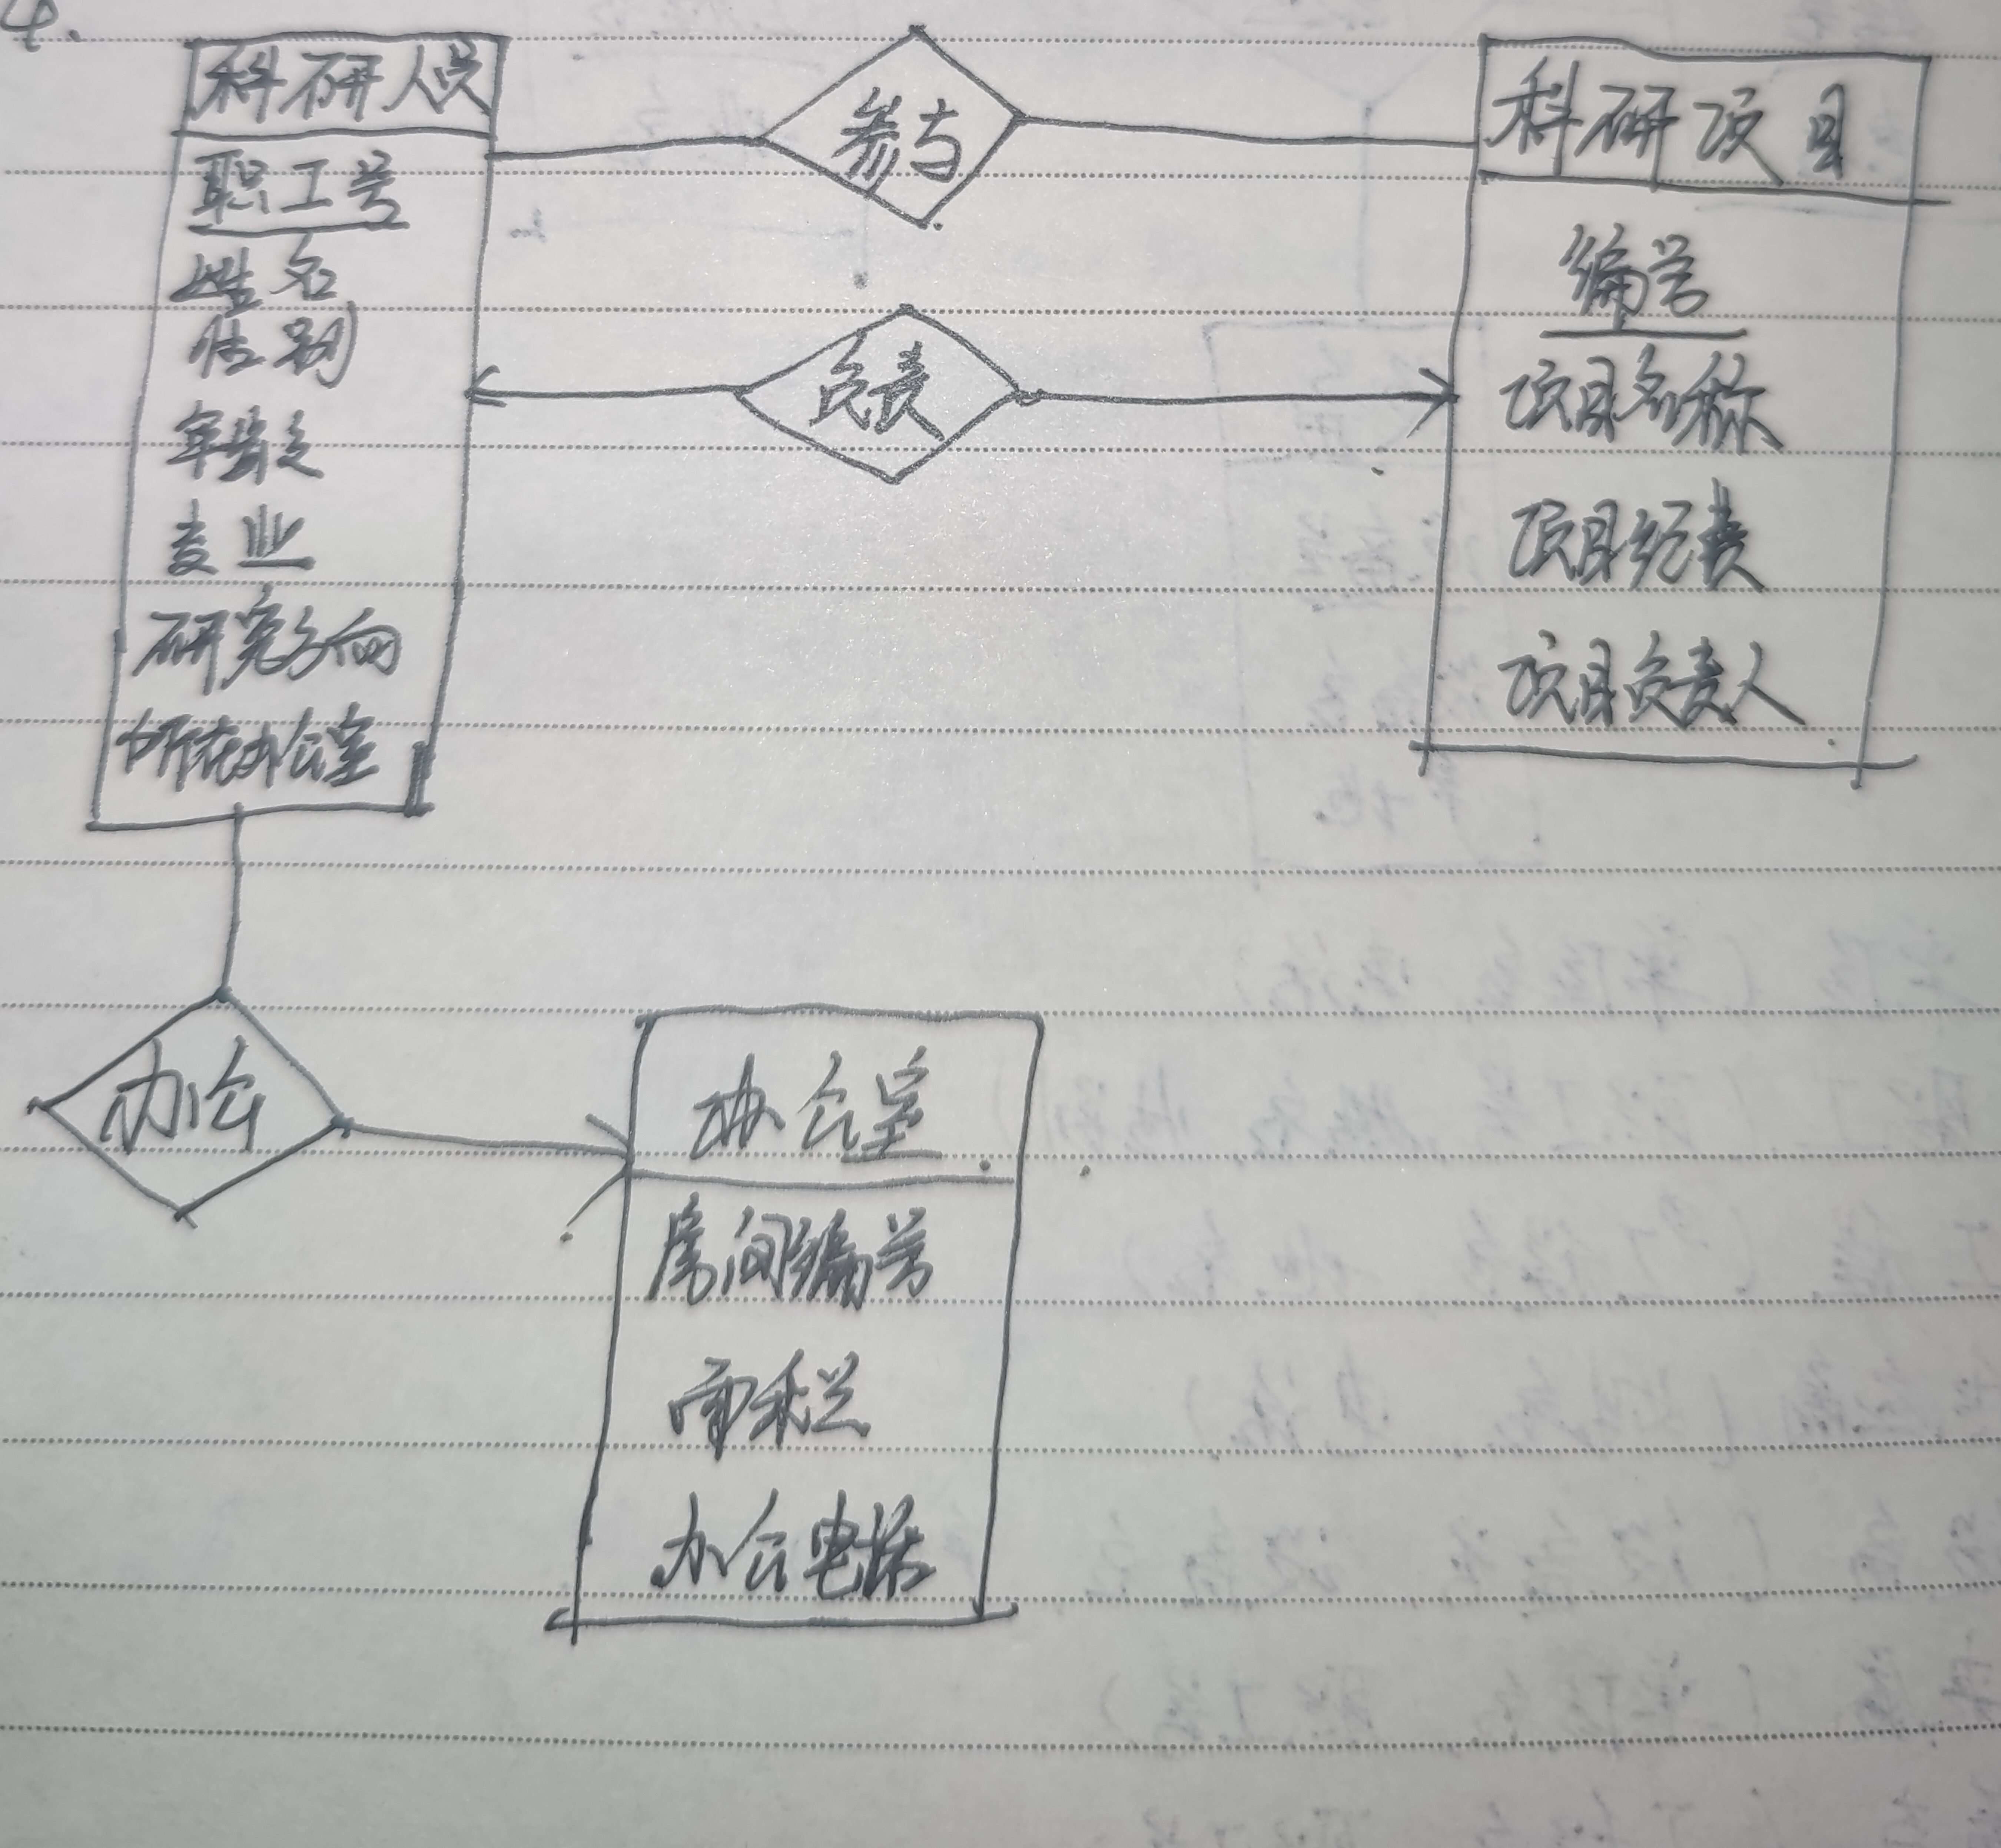 4.
科研人员
职工号
姓名
性别
年龄
专业
研究方向
所在办公室
参与
负责
科研项目
编号
项目名称
项目经费
项目负责人
办公
办公室
房间编号
面积
办公电话